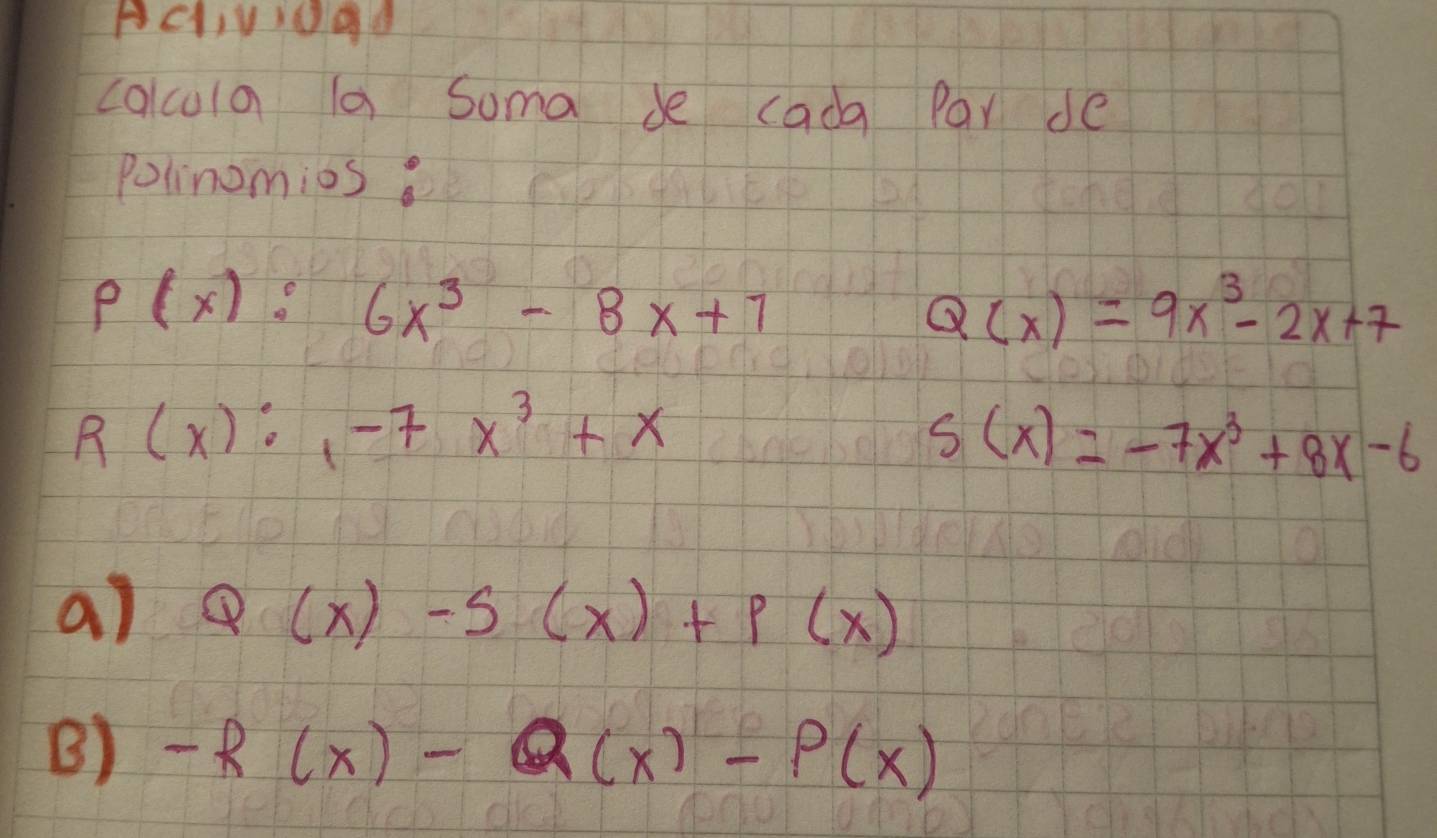 Actividad
calcula la Suma de cada Par de
Polinomios:
P(x): 6x³ - 8x+1 Q(x) = 9x³-2x+7
R(x): -7x³ + x S(x) = -7x³+8x-6
a) Q(x) -S(x) + P(x)
B) -R(x) - Q(x) - P(x)